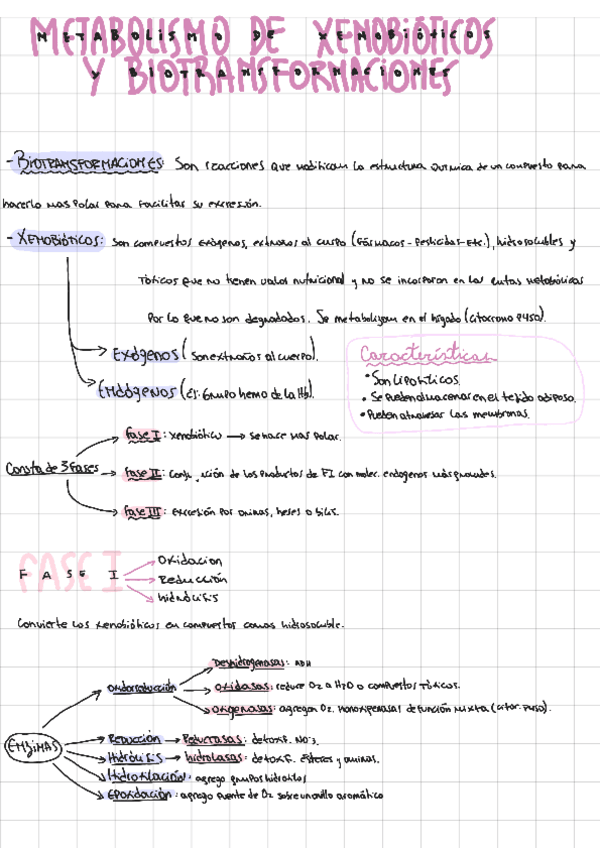 METABOLISMO DE XENOBIÓTICOS
Y BIOTRANSFORMACIONES
- BIOTRANSFORMACIONES: Son reacciones que modifican la estructura química de un compuesto para
hacerlo mas polar para facilitar su excresión.
- XENOBIÓTICOS: son compuestos exógenos, extraños al cuerpo (Fármacos - Pesticidas - Etc.), hidrosolubles y
tóxicos que no tienen valor nutricional y no se incorporan en las rutas metabólicas
Por lo que no son degradados. Se metabolizan en el higado (citocromo P450).
Exógenos (Son extraños al cuerpo).
Endógenos (Ej: Grupo hemo de la Hb).
Características
• Son Lipofílicos.
• Se pueden almacenar en el tejido adiposo.
• Pueden atravesar las membranas.
Consta de 3 Fases
Fase I: xenobiótico → se hace mas polar.
Fase II: Conju ación de los productos de FI con molec. endogenas más grandes.
Fase III: Excresión por orinas, heces o bilis.
FASE I
Oxidacion
Reducción
hidrólisis
Convierte los xenobióticos en compuestos conas hidrosoluble.
ENZIMAS
Oxidorreducción
Deshidrogenasas: ADH
Oxidasas: reduce O2 a H2O o compuestos tóxicos.
Oxigenasas: agregan O2. Monoxigenasas de función mixta (citocr. P450).
Reducción → Reductasas: detoxif. NO3.
Hidrólisis → hidrolasas: detoxif. Esteres y aminas.
Hidroxilación: agrego grupos hidroxilos
Epoxidación: agrego puente de O2 sobre un anillo aromático